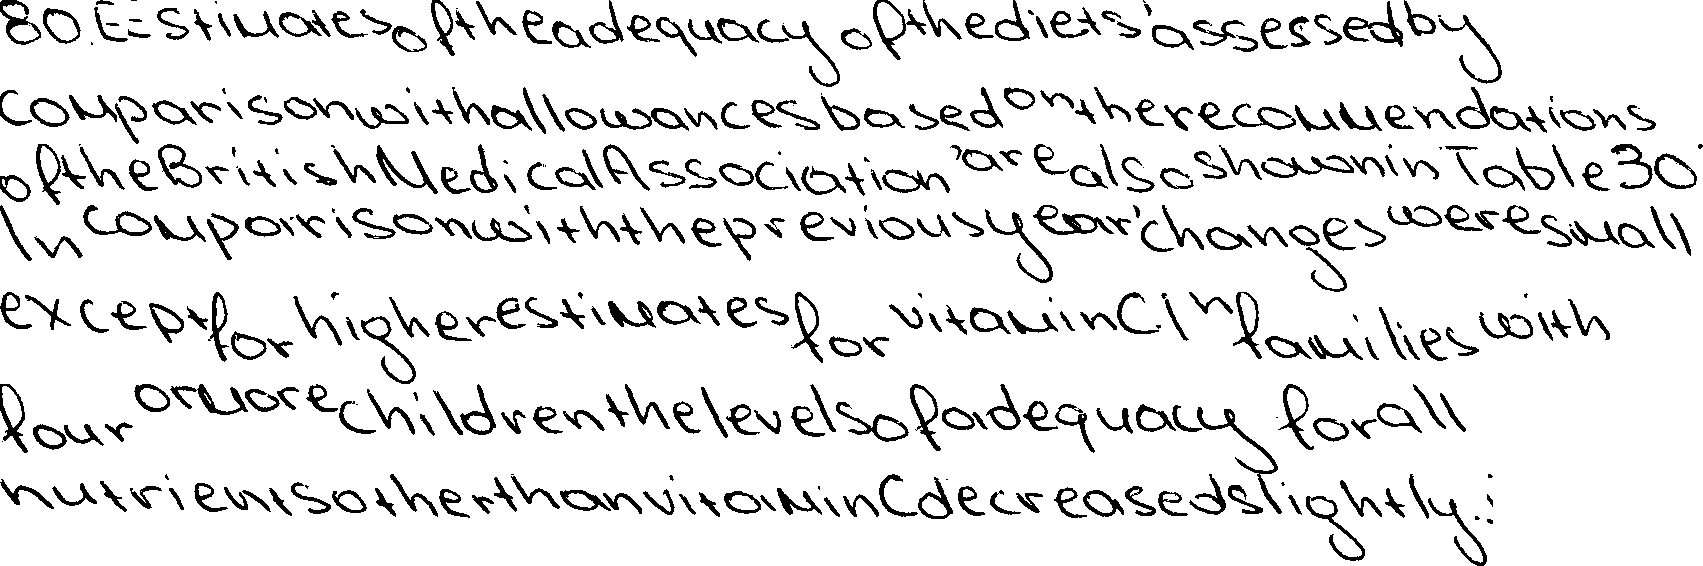 80. Estimates of the adequacy of the diets, assessed by
comparison with allowances based on the recommendations
of the British Medical Association, are also shown in Table 30.
In comparison with the previous year, changes were small
except for higher estimates for vitamin C. In families with
four or more children the levels of adequacy for all
nutrients other than vitamin C decreased slightly.: